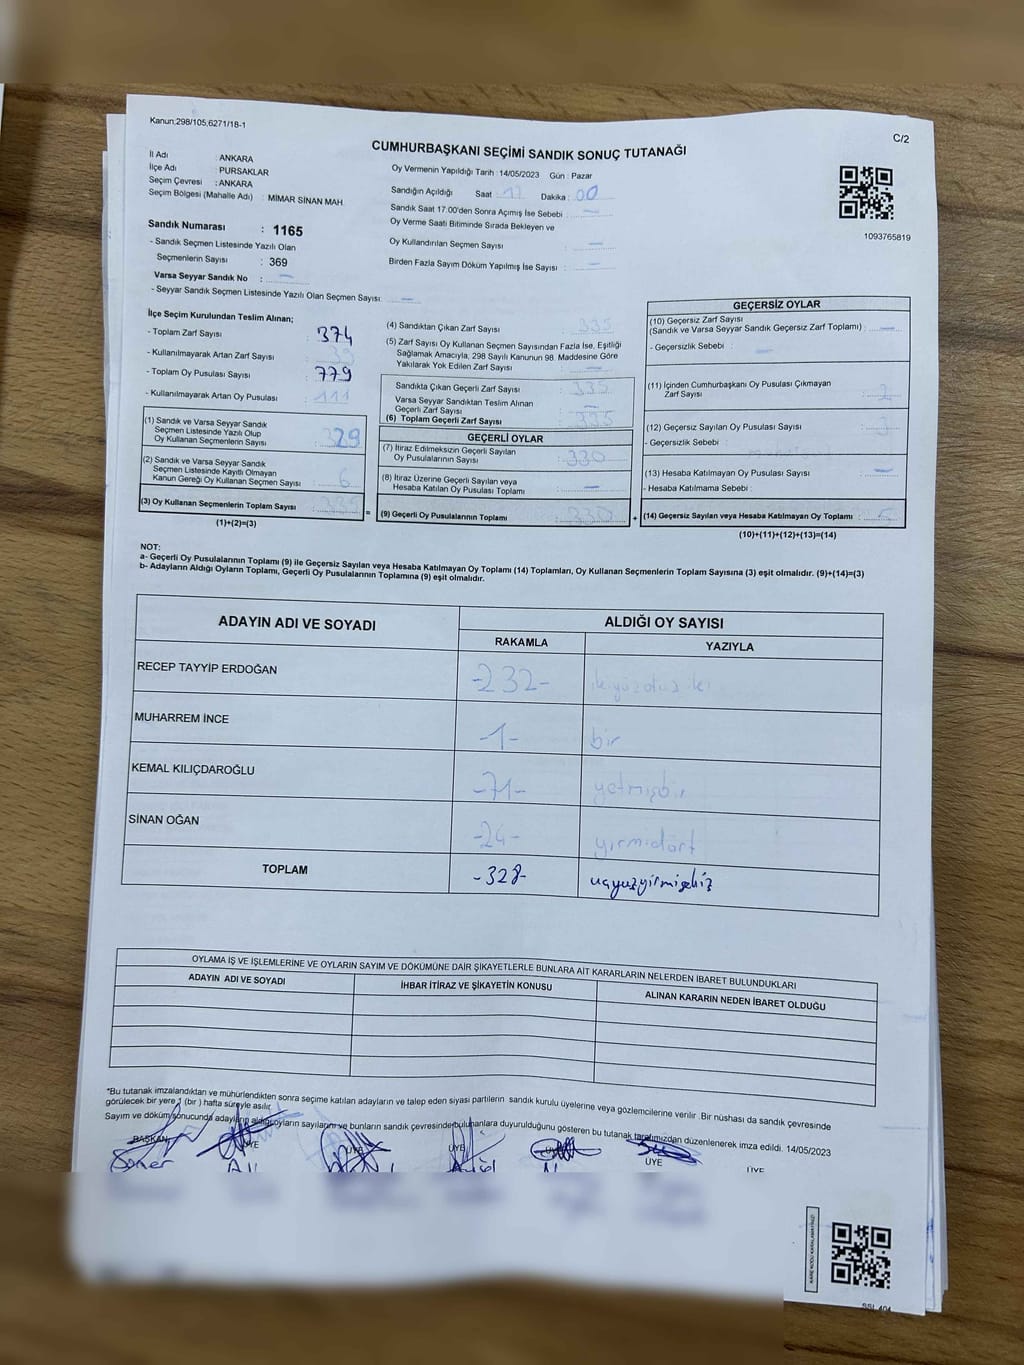 Kanun;298/105,6271/18-1
C/2
CUMHURBAŞKANI SEÇİMİ SANDIK SONUÇ TUTANAĞI
İl Adı : ANKARA
İlçe Adı : PURSAKLAR
Seçim Çevresi : ANKARA
Seçim Bölgesi (Mahalle Adı) : MİMAR SİNAN MAH.
Oy Vermenin Yapıldığı Tarih : 14/05/2023 Gün : Pazar
Sandığın Açıldığı Saat : 17 Dakika : 00
Sandık Saat 17.00'den Sonra Açımış İse Sebebi : —
Oy Verme Saati Bitiminde Sırada Bekleyen ve
Oy Kullandırılan Seçmen Sayısı : —
Birden Fazla Sayım Döküm Yapılmış İse Sayısı : —
1093765819
Sandık Numarası : 1165
- Sandık Seçmen Listesinde Yazılı Olan
Seçmenlerin Sayısı : 369
Varsa Seyyar Sandık No : —
- Seyyar Sandık Seçmen Listesinde Yazılı Olan Seçmen Sayısı: —
İlçe Seçim Kurulundan Teslim Alınan;
- Toplam Zarf Sayısı : 374
- Kullanılmayarak Artan Zarf Sayısı : 39
- Toplam Oy Pusulası Sayısı : 779
- Kullanılmayarak Artan Oy Pusulası : 111
(1) Sandık ve Varsa Seyyar Sandık
Seçmen Listesinde Yazılı Olup
Oy Kullanan Seçmenlerin Sayısı : 329
(2) Sandık ve Varsa Seyyar Sandık
Seçmen Listesinde Kayıtlı Olmayan
Kanun Gereği Oy Kullanan Seçmen Sayısı : 6
(3) Oy Kullanan Seçmenlerin Toplam Sayısı : 335
(1)+(2)=(3)
(4) Sandıktan Çıkan Zarf Sayısı : 335
(5) Zarf Sayısı Oy Kullanan Seçmen Sayısından Fazla İse, Eşitliği
Sağlamak Amacıyla, 298 Sayılı Kanunun 98. Maddesine Göre
Yakılarak Yok Edilen Zarf Sayısı : —
Sandıkta Çıkan Geçerli Zarf Sayısı : 335
Varsa Seyyar Sandıktan Teslim Alınan
Geçerli Zarf Sayısı : —
(6) Toplam Geçerli Zarf Sayısı : 335
GEÇERLİ OYLAR
(7) İtiraz Edilmeksizin Geçerli Sayılan
Oy Pusulalarının Sayısı : 330
(8) İtiraz Üzerine Geçerli Sayılan veya
Hesaba Katılan Oy Pusulası Toplamı : —
= (9) Geçerli Oy Pusulalarının Toplamı : 330
GEÇERSİZ OYLAR
(10) Geçersiz Zarf Sayısı
(Sandık ve Varsa Seyyar Sandık Geçersiz Zarf Toplamı) : —
- Geçersizlik Sebebi : —
(11) İçinden Cumhurbaşkanı Oy Pusulası Çıkmayan
Zarf Sayısı : 2
(12) Geçersiz Sayılan Oy Pusulası Sayısı : 3
- Geçersizlik Sebebi :
(13) Hesaba Katılmayan Oy Pusulası Sayısı : —
- Hesaba Katılmama Sebebi :
+ (14) Geçersiz Sayılan veya Hesaba Katılmayan Oy Toplamı : 5
(10)+(11)+(12)+(13)=(14)
NOT:
a- Geçerli Oy Pusulalarının Toplamı (9) ile Geçersiz Sayılan veya Hesaba Katılmayan Oy Toplamı (14) Toplamları, Oy Kullanan Seçmenlerin Toplam Sayısına (3) eşit olmalıdır. (9)+(14)=(3)
b- Adayların Aldığı Oyların Toplamı, Geçerli Oy Pusulalarının Toplamına (9) eşit olmalıdır.
ADAYIN ADI VE SOYADI
ALDIĞI OY SAYISI
RAKAMLA YAZIYLA
RECEP TAYYİP ERDOĞAN -232- ikiyüzotuz iki
MUHARREM İNCE -1- bir
KEMAL KILIÇDAROĞLU -71- yetmişbir
SİNAN OĞAN -24- yirmidört
TOPLAM -328- üçyüzyirmisekiz
OYLAMA İŞ VE İŞLEMLERİNE VE OYLARIN SAYIM VE DÖKÜMÜNE DAİR ŞİKAYETLERLE BUNLARA AİT KARARLARIN NELERDEN İBARET BULUNDUKLARI
ADAYIN ADI VE SOYADI İHBAR İTİRAZ VE ŞİKAYETİN KONUSU ALINAN KARARIN NEDEN İBARET OLDUĞU
*Bu tutanak imzalandıktan ve mühürlendikten sonra seçime katılan adayların ve talep eden siyasi partilerin sandık kurulu üyelerine veya gözlemcilerine verilir. Bir nüshası da sandık çevresinde
görülecek bir yere 1 (bir ) hafta süreyle asılır.
Sayım ve döküm sonucunda adayların aldığı oyların sayılarını ve bunların sandık çevresinde bulunanlara duyurulduğunu gösteren bu tutanak tarafımızdan düzenlenerek imza edildi. 14/05/2023
BAŞKAN ÜYE ÜYE ÜYE ÜYE ÜYE
Soner